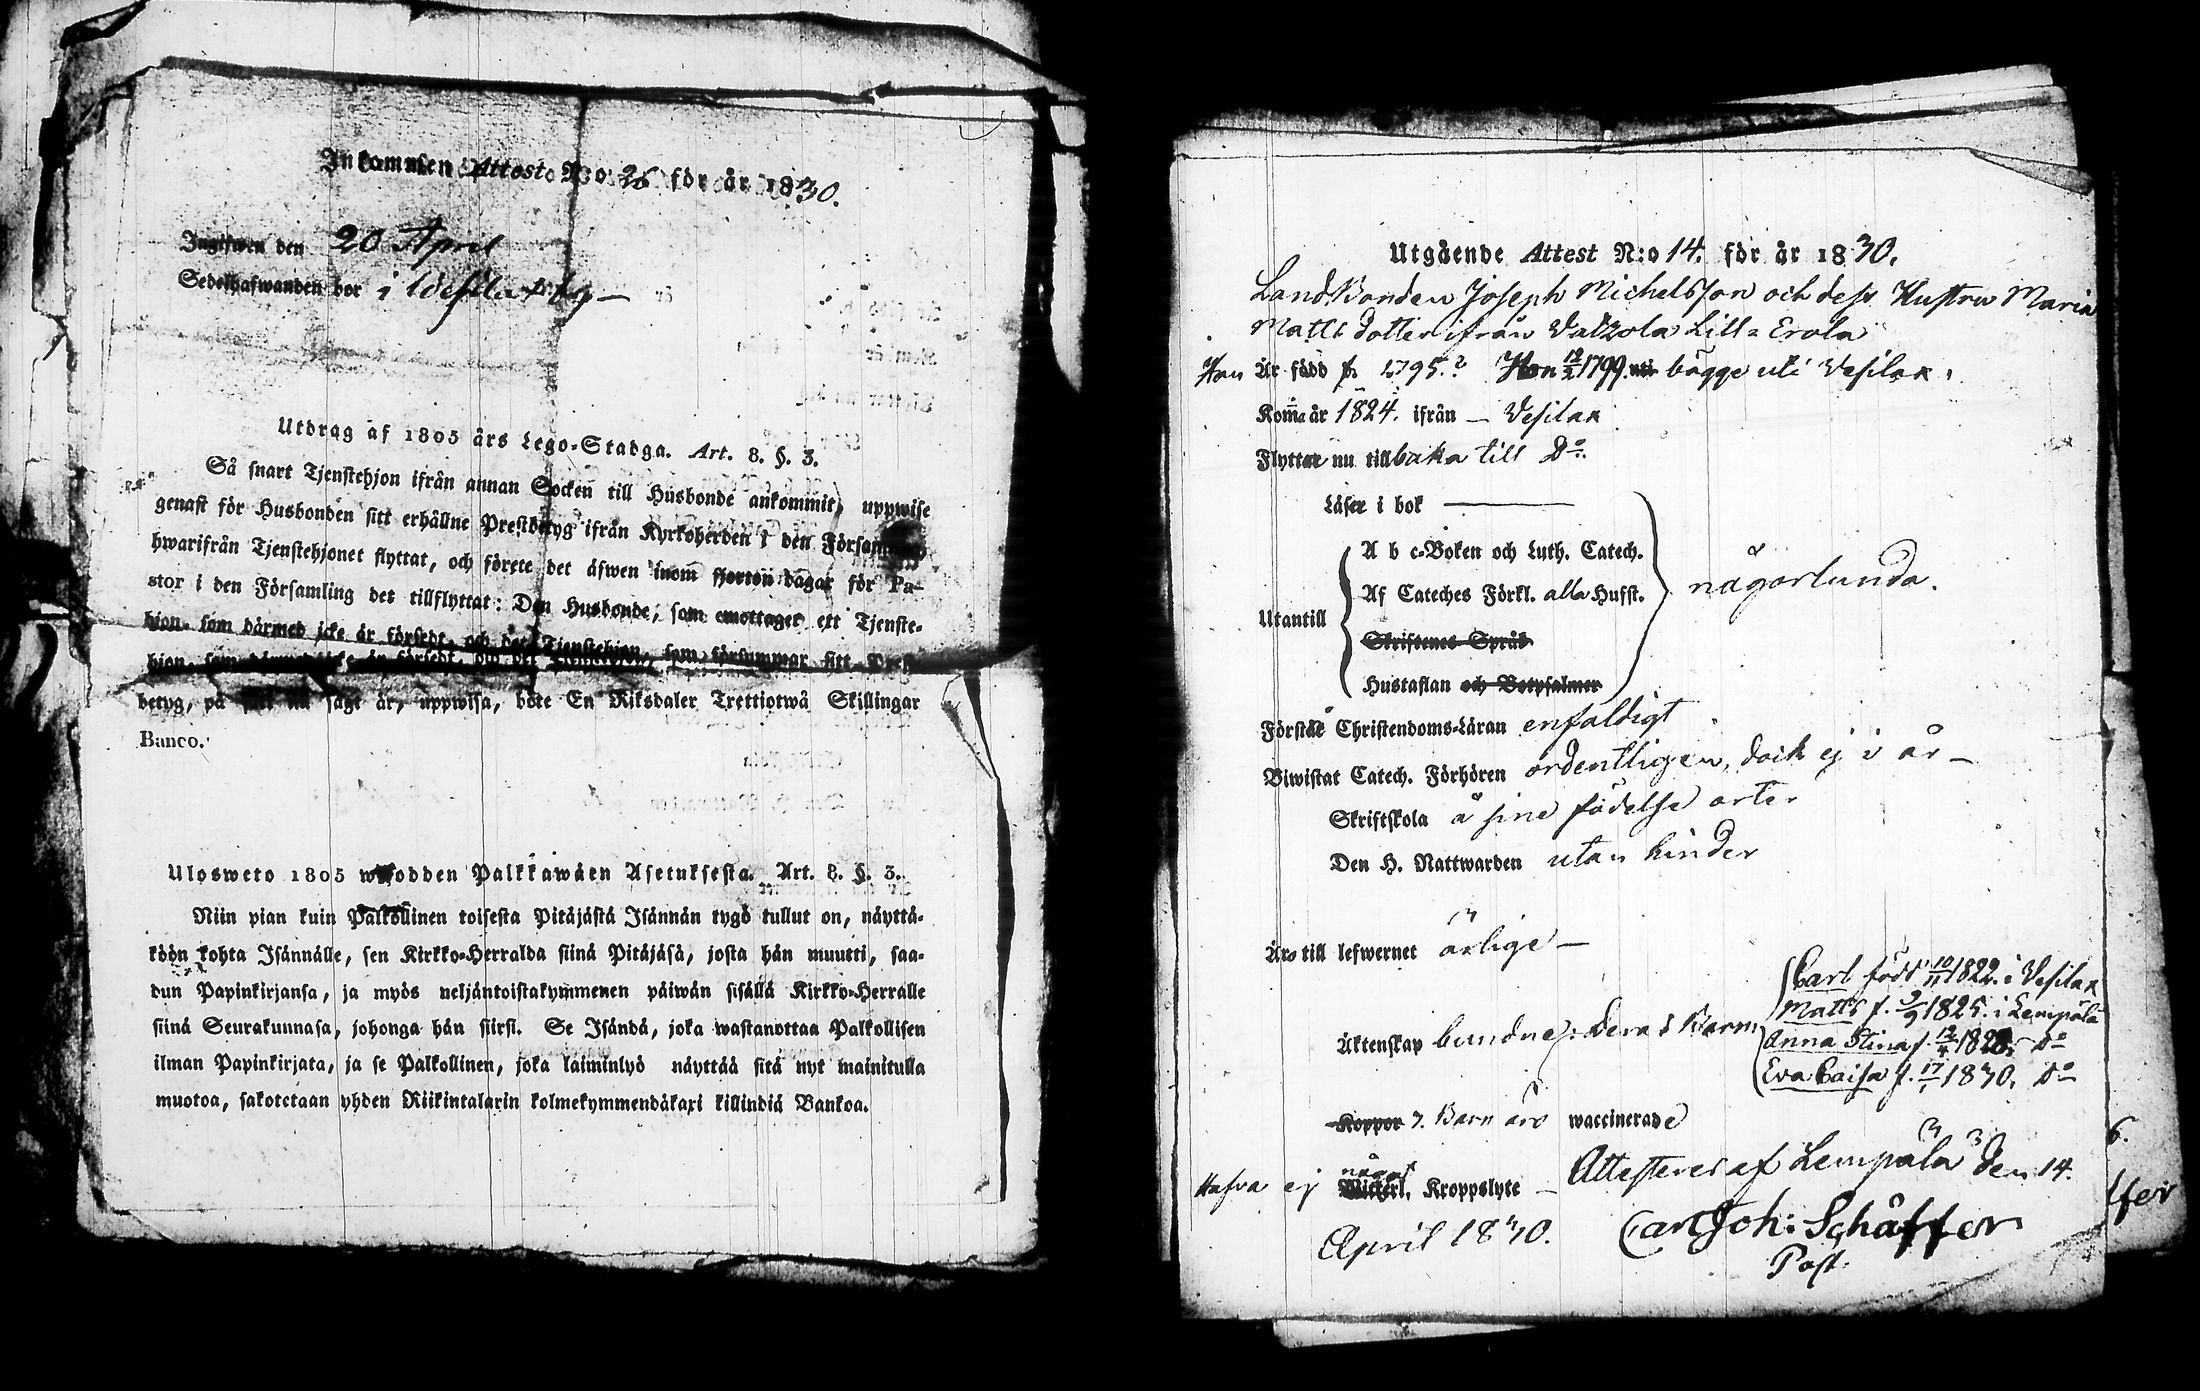 Inkommen Attest N:o 26 för år 1830.
Ingifwen den 20 April
Sedelhafwanden bor i Wesilax by
Utdrag af 1805 års Lego-Stadga. Art. 8. §. 3.
Så snart Tjenstehjon ifrån annan Socken till Husbonde ankommit, uppwise
genast för Husbonden sitt erhållne Prestbetyg ifrån Kyrkoherden i den Församling
hwarifrån Tjenstehjonet flyttat, och förete det äfwen inom fjorton dagar för Pa-
stor i den Församling det tillflyttat: Den Husbonde, som emottager ett Tjenste-
hjon, som därmed icke är försedt, och det Tjenstehjon, som försummar sitt Prest-
betyg, på sagt är, uppwisa, böte En Riksdaler Trettiotwå Skillingar
Banco.
Ulosweto 1805 wuodden Palkkawäen Asetuksesta. Art. 8. §. 3.
Niin pian kuin Palkollinen toisesta Pitäjästä Isännän tygö tullut on, näyttä-
köön kohta Isännälle, sen Kirkko-Herralda siinä Pitäjäsä, josta hän muutti, saa-
dun Papinkirjansa, ja myös neljäntoistakymmenen päiwän sisällä Kirkko-Herralle
siinä Seurakunnasa, johonga hän siirsi. Se Isändä, joka wastanottaa Palkollisen
ilman Papinkirjata, ja se Palkollinen, joka laiminlyö näyttää sitä nyt mainitulla
muotoa, sakotetaan yhden Riikintalarin kolmekymmendäkaxi killindiä Bankoa.
Utgående Attest N:o 14. för år 1830.
LandBonden Joseph Michelsson och dess Hustru Maria
Matts dotter ifrån Valzola Lill-Erola
Han Är född 1795.? Hon 12/2 1799. bägge uti Vesilax.
Komne år 1824. ifrån — Vesilax
Flytta nu tillbaka till Do.
Läser i bok ———
Utantill
A b c-Boken och Luth. Catech.
Af Cateches Förkl. alla Hufst.
Skriftenes Språk
Hustaflan och Botpsalmer
någorlunda.
Förstå Christendoms-Läran enfaldigt
Biwistat Catech. Förhören ordentligen, dock ej i år —
Skriftskola å sine födelse orter
Den H. Nattwarden utan hinder
Äro till lefwernet ärlige —
Äktenskap bundne: Deras Barn
Carl född 10/11 1822. i Vesilax
Matts f. 9/9 1825. i Lempälä
Anna Stina f. 12/4 1828. Do
Eva Caisa f. 17/1 1830. Do
Koppor 3. Barn äro waccinerade
Hafva ej något Kroppslyte — Attesteres af Lempälä den 14.
April 1830. Carl Joh: Schäffer
Past.
6.
ffer